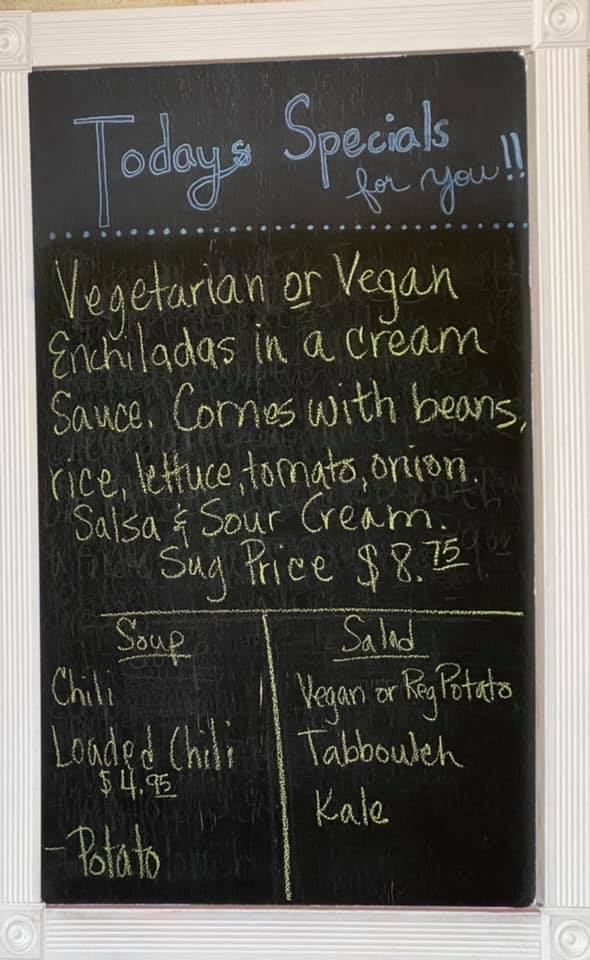 Todays Specials
for you!!
Vegetarian or Vegan
Enchiladas in a cream
Sauce. Comes with beans,
rice, lettuce, tomato, onion.
Salsa & Sour Cream.
Sug Price $8.75
Soup
Chili
Loaded Chili
$4.95
- Potato
Salad
Vegan or Reg Potato
Tabbouleh
Kale